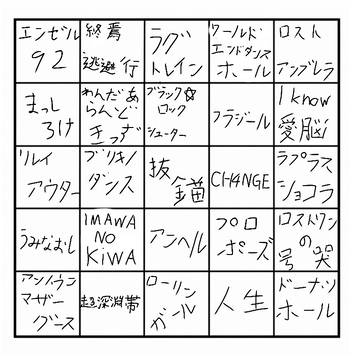 エンゼル
92
終焉
逃避行
ラグ
トレイン
ワールド
エンドダンス
ホール
ロスト
アンブレラ
まっし
ろけ
わんだあ
らんど
きっず
ブラック☆
ロック
シューター
フラジール
I know
愛脳
リレイ
アウター
ブリキノ
ダンス
抜
錨
CH4NGE
ラプラス
ショコラ
うみなおし
IMAWA
NO
KIWA
アンヘル
プロ
ポーズ
ロストワン
の
号哭
アンノウン
マザー
グース
超深淵帯
ローリン
ガール
人生
ドーナツ
ホール